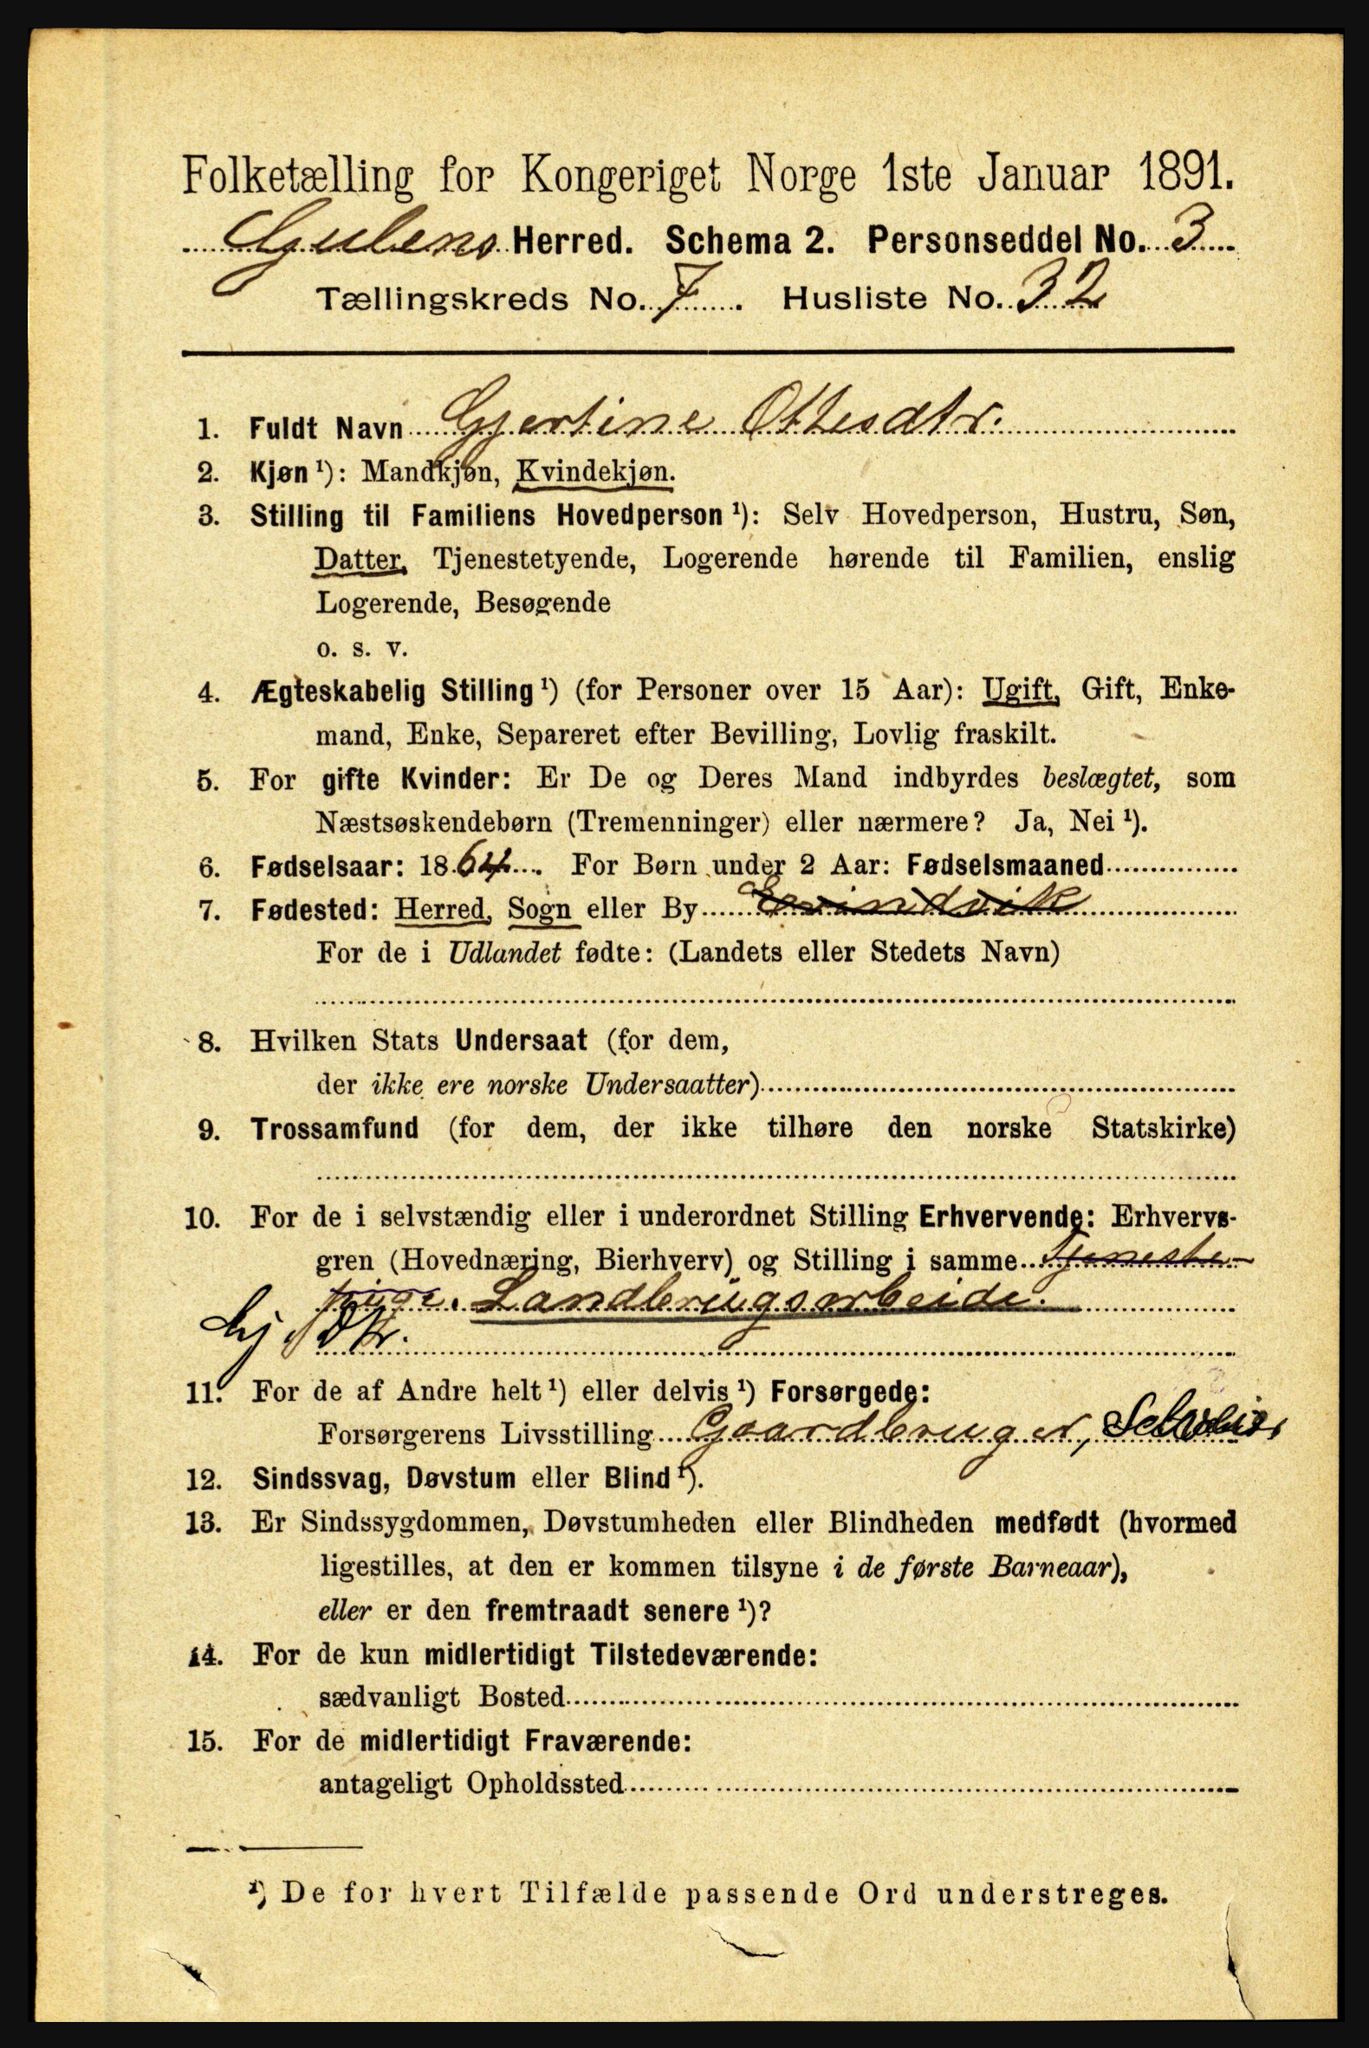 Folketælling for Kongeriget Norge 1ste Januar 1891.
Gulens Herred. Schema 2. Personseddel No. 3
Tællingskreds No. 7. Husliste No. 32
1. Fuldt Navn Gjertine Ottesdtr.
2. Kjøn ¹): Mandkjøn, Kvindekjøn.
3. Stilling til Familiens Hovedperson ¹): Selv Hovedperson, Hustru, Søn,
Datter, Tjenestetyende, Logerende hørende til Familien, enslig
Logerende, Besøgende
o. s. v.
4. Ægteskabelig Stilling ¹) (for Personer over 15 Aar): Ugift, Gift, Enke-
mand, Enke, Separeret efter Bevilling, Lovlig fraskilt.
5. For gifte Kvinder: Er De og Deres Mand indbyrdes beslægtet, som
Næstsøskendebørn (Tremenninger) eller nærmere? Ja, Nei ¹).
6. Fødselsaar: 1864. For Børn under 2 Aar: Fødselsmaaned
7. Fødested: Herred, Sogn eller By Evindvik
For de i Udlandet fødte: (Landets eller Stedets Navn)
8. Hvilken Stats Undersaat (for dem,
der ikke ere norske Undersaatter)
9. Trossamfund (for dem, der ikke tilhøre den norske Statskirke)
10. For de i selvstændig eller i underordnet Stilling Erhvervende: Erhvervs-
gren (Hovednæring, Bierhverv) og Stilling i samme Tjeneste-
pige. Landbrugsarbeide.
11. For de af Andre helt ¹) eller delvis ¹) Forsørgede:
Forsørgerens Livsstilling Gaardbruger, Selveier
12. Sindssvag, Døvstum eller Blind ¹).
13. Er Sindssygdommen, Døvstumheden eller Blindheden medfødt (hvormed
ligestilles, at den er kommen tilsyne i de første Barneaar),
eller er den fremtraadt senere ¹)?
14. For de kun midlertidigt Tilstedeværende:
sædvanligt Bosted
15. For de midlertidigt Fraværende:
antageligt Opholdssted
¹) De for hvert Tilfælde passende Ord understreges.